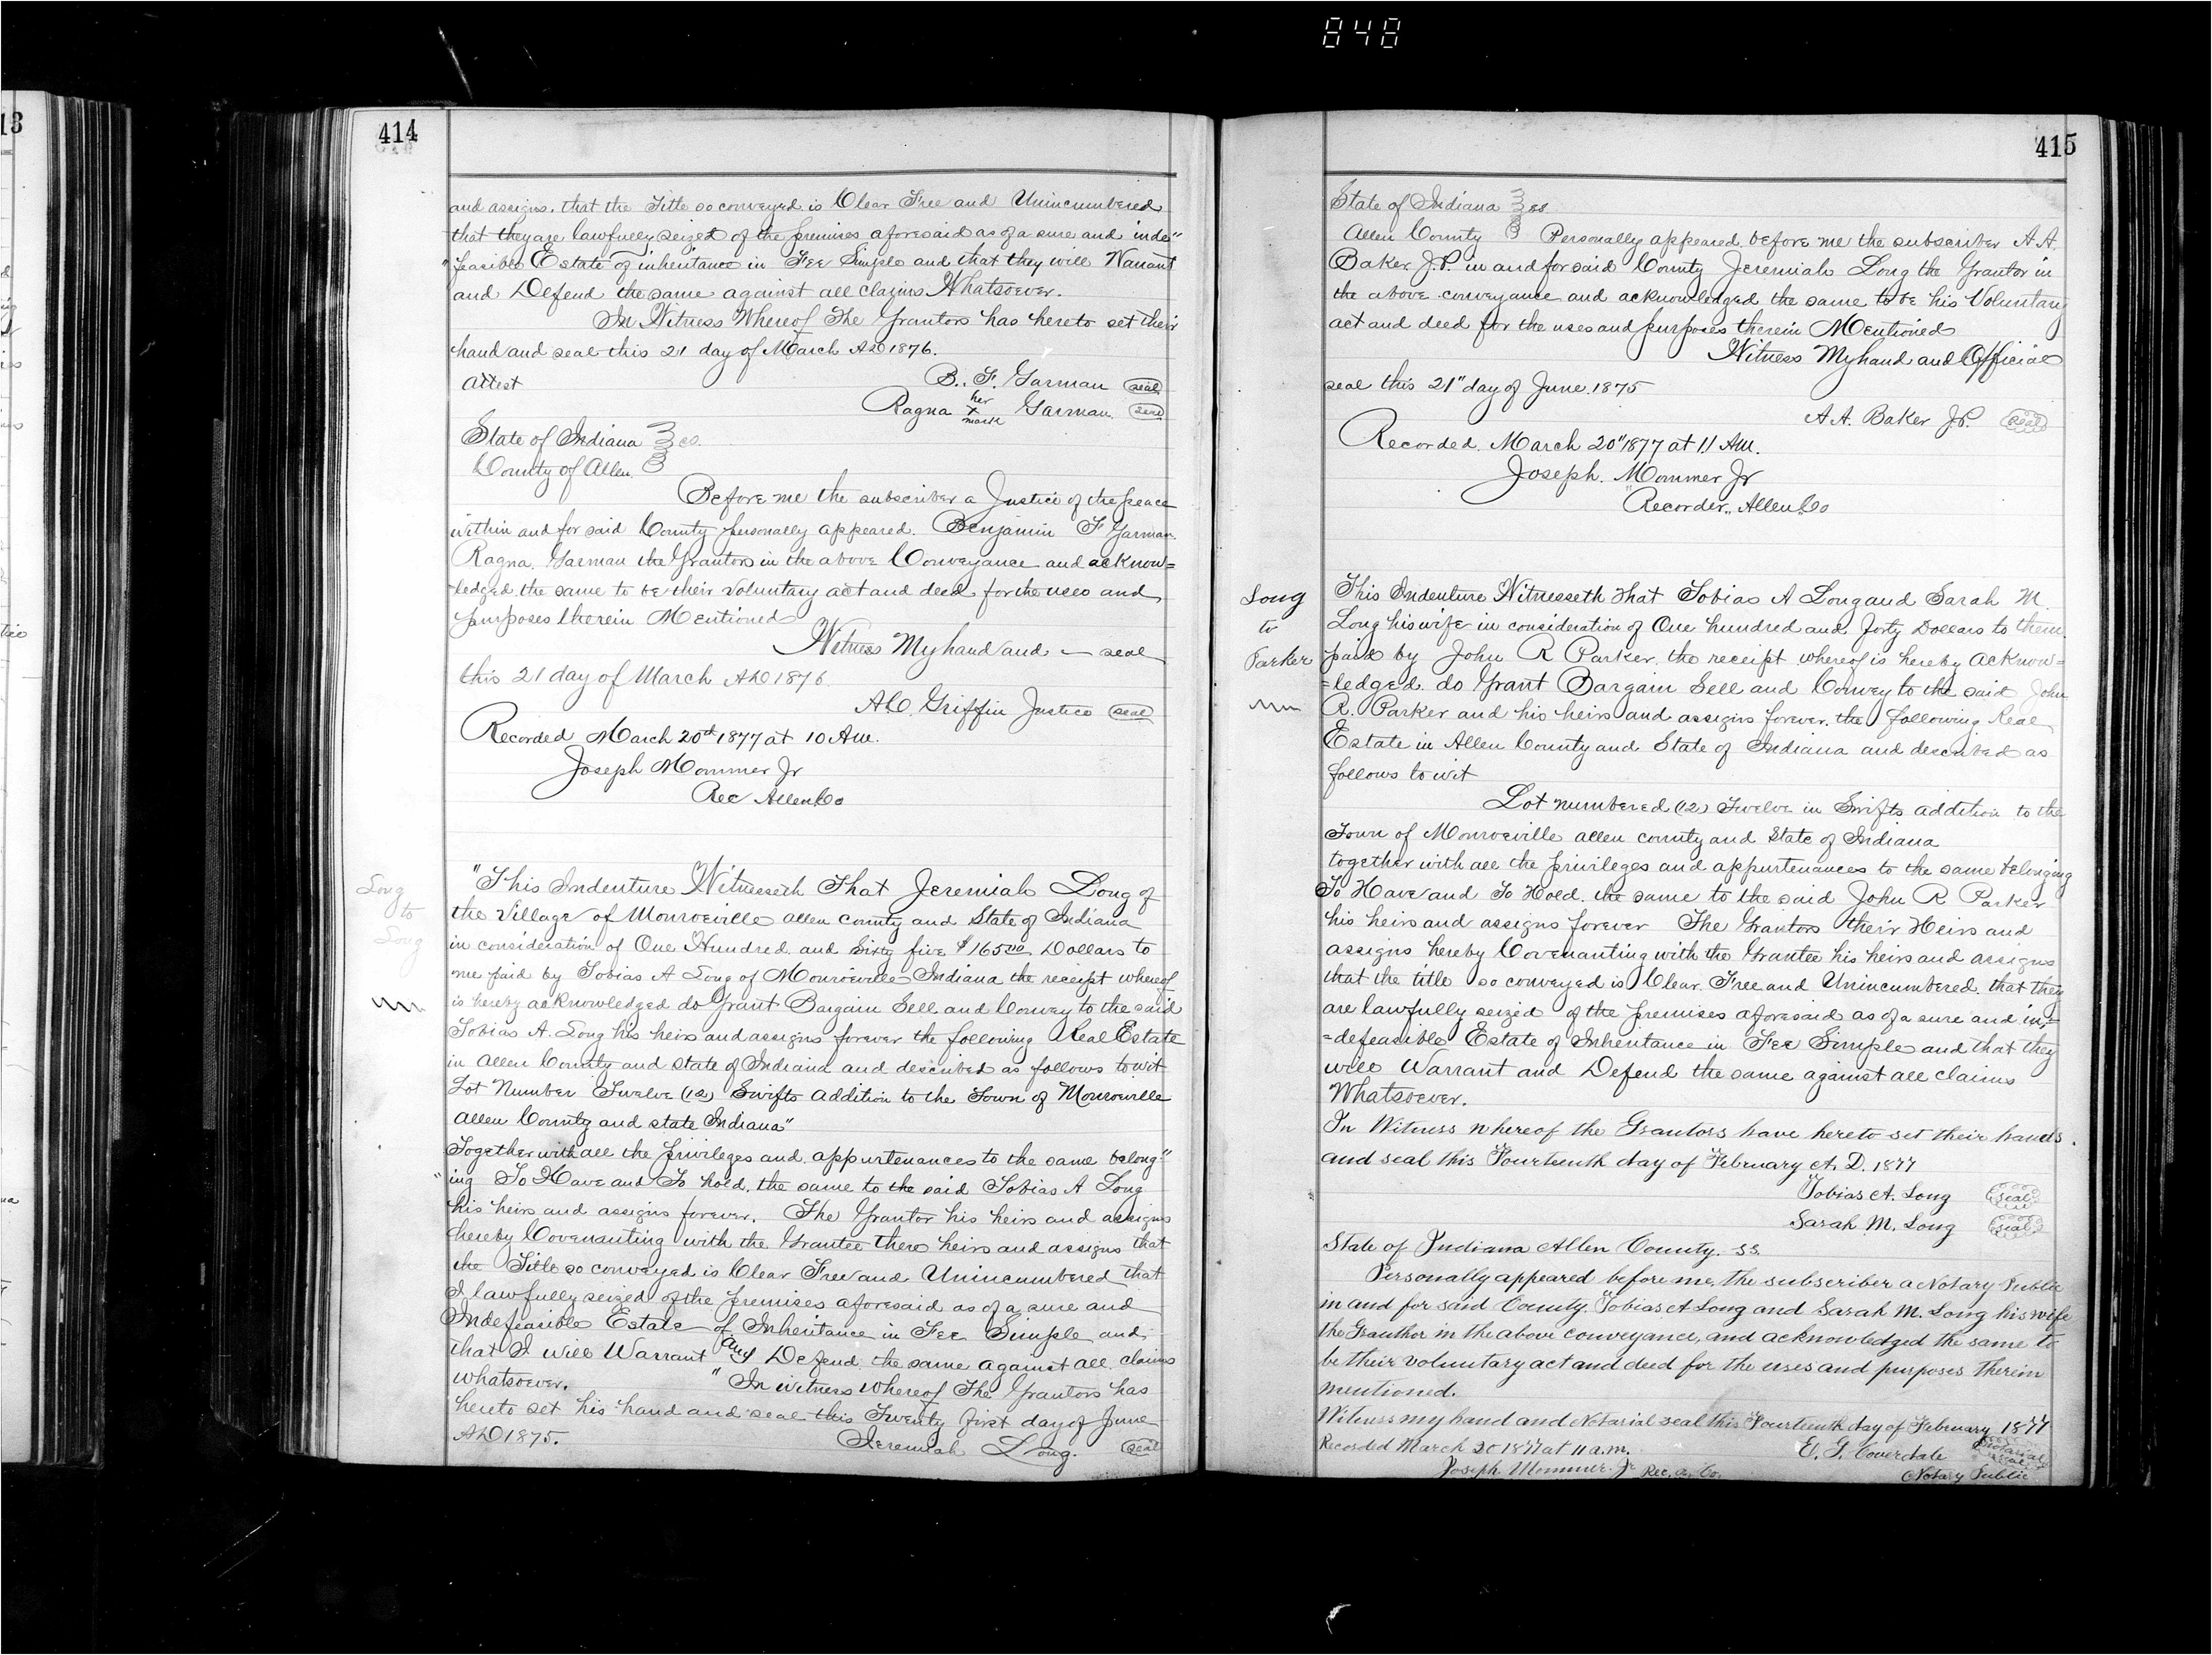 848
13
414
and assigns, that the Title so conveyed is Clear Free and Unincumbered
that they are lawfully seized of the premises aforesaid as of a sure and inde"
"feasible Estate of inheritance in Fee Simple and that they will Warrant
and Defend the same against all claims Whatsoever.
In Witness Whereof The Grantors has hereto set their
hand and seal this 21 day of March AD 1876.
Attest B. F. Garman seal
Ragna her x mark Garman seal
State of Indiana } ss.
County of Allen }
Before me the subscriber a Justice of the peace
within and for said County personally appeared. Benjamin F Garman
Ragna. Garman the Grantors in the above Conveyance and acknow=
ledged the same to be their voluntary act and deed for the uses and
purposes therein Mentioned
Witness My hand and — seal
this 21 day of March AD 1876
A.C. Griffin Justice seal
Recorded March 20th 1877 at 10 Am.
Joseph Mommer Jr
Rec Allen Co
Long
to
Long
"This Indenture Witnesseth That Jeremiah Long of
the Village of Monroeville allen county and State of Indiana
in consideration of One Hundred and Sixty five $165 00 Dollars to
me paid by Tobias A Long of Monroeville Indiana the receipt whereof
is hereby acknowledged do Grant Bargain Sell and Convey to the said
Tobias A. Long his heirs and assigns forever the following Real Estate
in Allen County and state of Indiana and described as follows to wit
Lot Number Twelve (12) Swifts addition to the Town of Monroeville
allen County and state Indiana"
Together with all the privileges and appurtenances to the same belong"
"ing To Have and To hold, the same to the said Tobias A Long
his heirs and assigns forever. The Grantor his heirs and assigns
hereby Covenanting with the Grantee there heirs and assigns that
the Title so conveyed is Clear Free and Unincumbered that
I lawfully seized of the premises aforesaid as of a sure and
Indefeasible Estate of Inheritance in Fee Simple and
that I will Warrant and Defend the same against all claims
whatsoever. "In witness whereof The Grantors has
hereto set his hand and seal this Twenty first day of June
AD 1875. Jeremiah Long. seal
415
State of Indiana } ss
Allen County } Personally appeared before me the subscriber A A.
Baker J.P. in and for said County Jeremiah Long the Grantor in
the above conveyance and acknowledged the same to be his Voluntary
act and deed for the uses and purposes therein Mentioned
Witness My hand and Official
seal this 21" day of June 1875
A.A. Baker J.P. seal
Recorded March 20" 1877 at 11 Am.
Joseph. Mommer Jr
Recorder.. Allen Co
Long
to
Parker
This Indenture Witnesseth That Tobias A Long and Sarah M.
Long his wife in consideration of One hundred and forty Dollars to them
paid by John R Parker the receipt whereof is hereby acknow=
=ledged. do Grant Bargain Sell and Convey to the said John
R. Parker and his heirs and assigns forever. the following Real
Estate in Allen County and State of Indiana and described as
follows to wit
Lot numbered (12) Twelve in Swifts addition to the
Town of Monroeville allen county and State of Indiana
together with all the privileges and appurtenances to the same belonging
To Have and To Hold the same to the said John R Parker
his heirs and assigns forever The Grantors their Heirs and
assigns hereby Covenanting with the Grantee his heirs and assigns
that the title so conveyed is Clear. Free and Unincumbered. that they
are lawfully seized of the premises aforesaid as of a sure and in=
=defeasible Estate of Inheritance in Fee Simple and that they
will Warrant and Defend the same against all claims
Whatsoever.
In Witness whereof the Grantors have hereto set their hands.
and seal this Fourteenth day of February A. D. 1877
Tobias A. Long seal
Sarah M. Long seal
State of Indiana Allen County. ss.
Personally appeared before me, the subscriber a Notary Public
in and for said County. Tobias A Long and Sarah M. Long his wife
the Granthor in the above conveyance, and acknowledged the same to
be their voluntary act and deed for the uses and purposes therein
mentioned.
Witness my hand and Notarial seal this Fourteenth day of February 1877
Recorded March 20 1877 at 11 a.m. E. G. Coverdale Notarial seal
Joseph Mommer. Jr Rec. A. Co. Notary Public